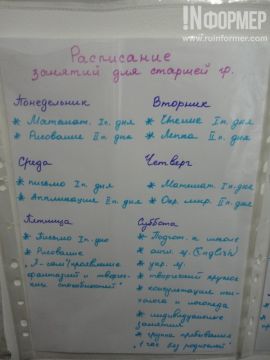 INФОРМЕР
www.ruinformer.com
Расписание
занятий для старшей гр.
Понедельник
* Математ. I п. дня
* Рисование II п. дня
Вторник
* Чтение I п. дня
* Лепка II п. дня
Среда
* письмо I п. дня
* Аппликация II п. дня
Четверг
* Математ. I п. дня
* Окр. мир. II п. дня
Пятница
* Письмо I п. дня
* Рисование
"Я - сам" (проявление
фантазий и творчес-
ких способностей)
Суббота
* Подгот. к школе
* англ. яз. (English)
* укр. яз.
* творческий кружок
* консультация пси-
холога и логопеда
* индивидуальные
занятия
* группа пребывания
"час без родителей"